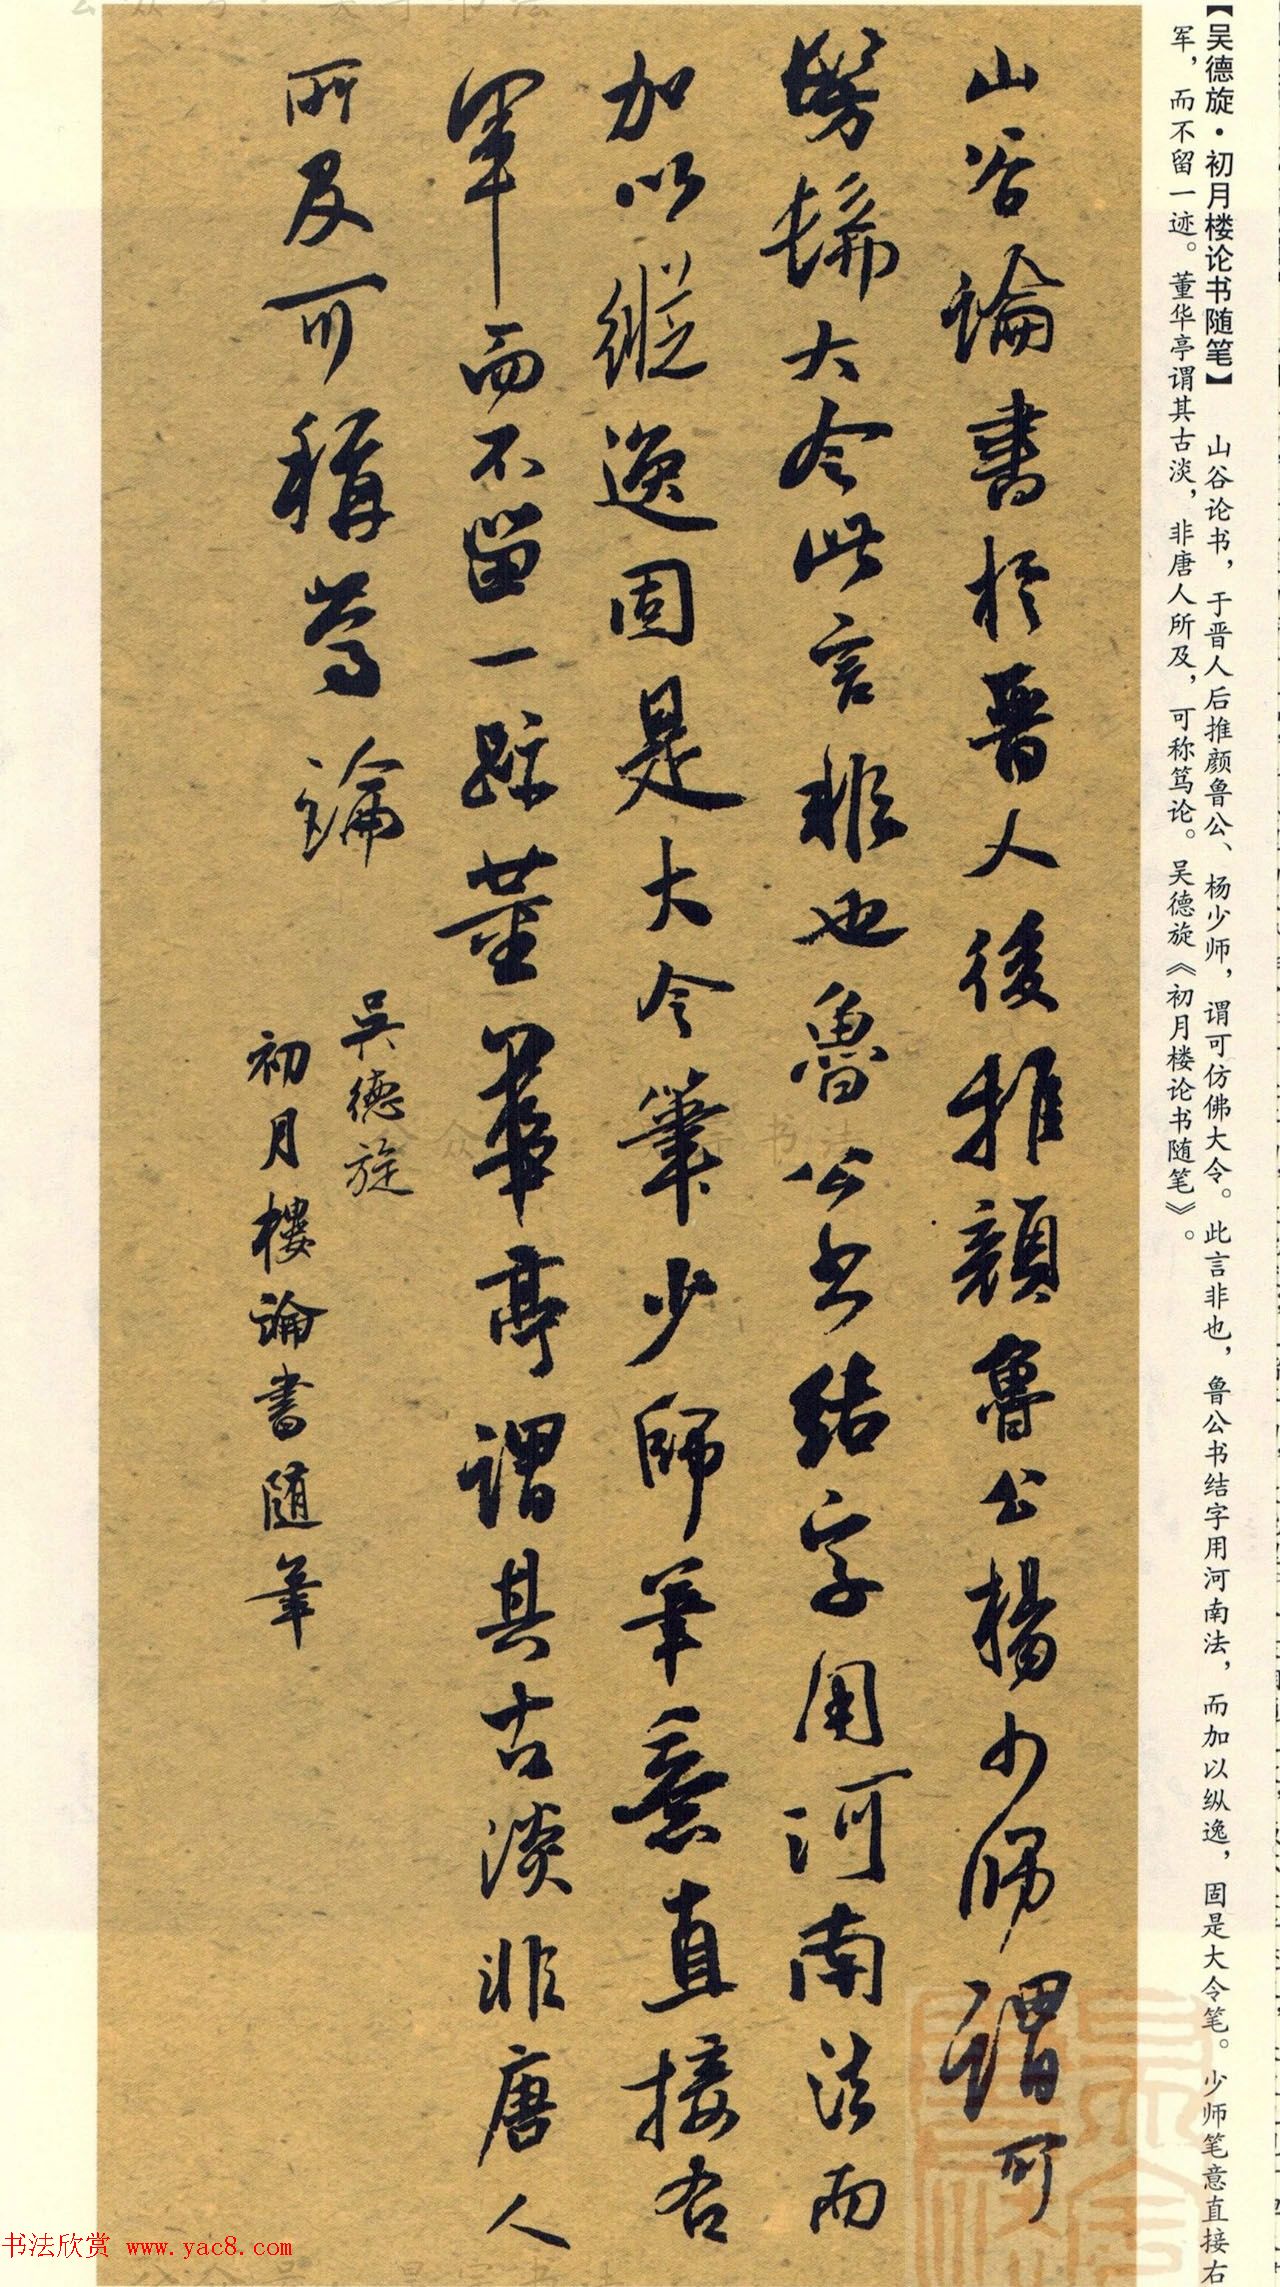 【吴德旋·初月楼论书随笔】 山谷论书，于晋人后推颜鲁公、杨少师，谓可仿佛大令。此言非也，鲁公书结字用河南法，而加以纵逸，固是大令笔。少师笔意直接右
军，而不留一迹。董华亭谓其古淡，非唐人所及，可称笃论。吴德旋《初月楼论书随笔》。
山谷論書於晉人後推顏魯公楊少師謂可
髣髴大令此言非也魯公書結字用河南法而
加以縱逸固是大令筆少師筆意直接右
軍而不留一跡董華亭謂其古淡非唐人
所及可稱篤論
吳德旋
初月樓論書随筆
书法欣赏 www.yac8.com